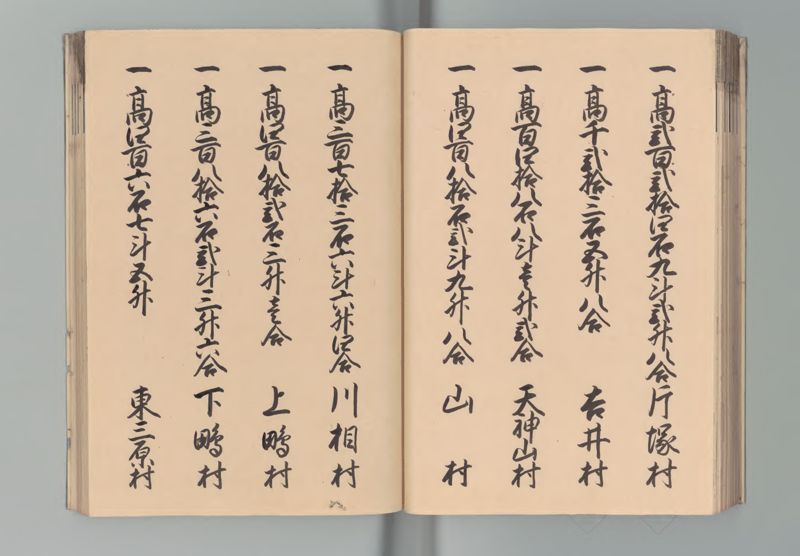 一高弐百弐拾四石九斗弐升八合片塚村
一高千弐拾三石五升八合吉井村
一高百四拾八石八斗壱升弐合天神山村
一高四百八拾石弐斗九升八合山村
一高三百七拾三石六斗六升四合川相村
一高四百八拾弐石三升壱合上鴨村
一高三百八拾六石弐斗三升六合下鴨村
一高四百六石七斗五升東三原村